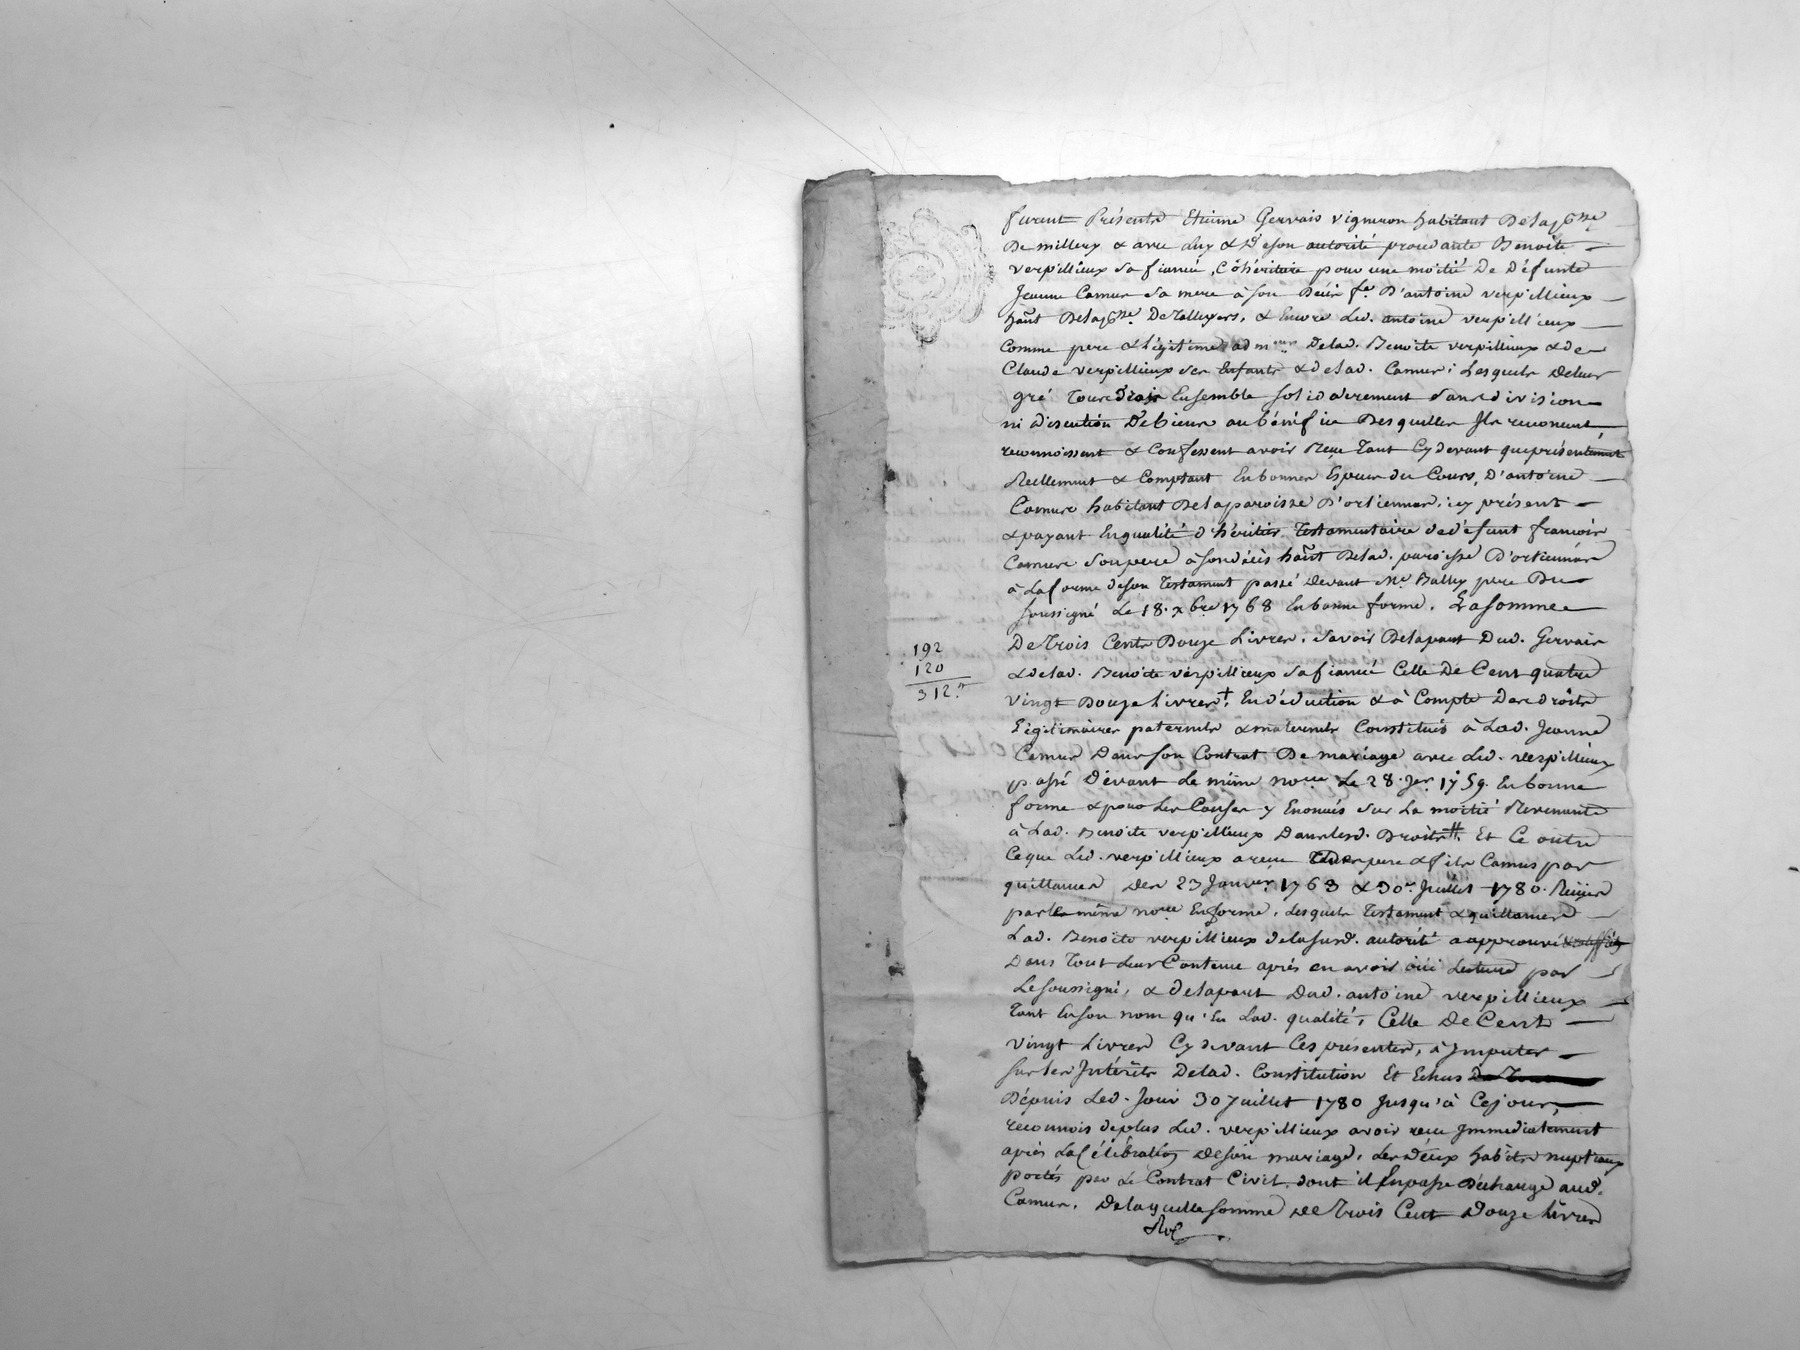 furent Présents Etienne Gervais vigneron habitant De la psse
De millery & avec luy & De son autorité procédante Benoite
verpillieux sa fiancée, Cohéritière pour une moitié De Défunte
Jeanne Camus sa mere à son Décès fe. D'antoine verpillieux
hant De la psse. De Talluyers, & Encore Led. antoine verpillieux
Comme pere & légitime adm eur De lad. Benoite verpillieux & de
Claude verpillieux ses Enfants & de lad. Camus: Lesquels De leur
gré Tous Trois Ensemble solidairement sans division
ni discution De biens au bénéfice Desquelles Ils renoncent
reconnoissent & Confessent avoir Reçu Tant Cy devant que présentement
Réellement & Comptant En bonnes Especes du Cours, D'antoine
Camus habitant De la paroisse D'orliennas, icy présent
& payant En qualité d'héritier Testamentaire de défunt françois
Camus son pere à son décès hant De lad. paroisse D'orliennas
à La forme de son Testament passé Devant Me. Bally pere Du
soussigné Le 18. xbre 1768 En bonne forme. La somme
192
120
312.
De Trois Cents Douze Livres. savoir De la part Dud. Gervais
& de lad. Benoite verpillieux sa fiancée Celle De Cent quatre
vingt Douze livres † En déduction & à Compte Des droits
légitimaires paternels & maternels Constitués à Lad. Jeanne
Camus Dans son Contrat De mariage avec Led. verpillieux
passé Devant Le même nore Le 28. Jer. 1759. En bonne
forme & pour Les Causes y Enoncés sur La moitié Revenante
à Lad. Benoite verpillieux Dans lesd. Droits #. Et Ce outre
Ce que Led. verpillieux a reçu Des pere & fils Camus par
quittances Des 23 Janvier 1763 & 30e. Juillet 1780. Reçues
par Le même nore En forme. Lesquels Testament & quittances
Lad. Benoite verpillieux de la susd. autorité a approuvé & ratiffié
Dans Tout Leur Contenu après en avoir oüi Lecture par
Le soussigné, & de la part Dud. antoine verpillieux
Tant En son nom qu'En Lad. qualité, Celle De Cent
vingt Livres Cy devant Ces présentes, à Imputer
sur les Intérêts De lad. Constitution Et Echus
Dépuis Led. Jour 30 Juillet 1780 Jusqu'à Ce jour,
reconnois de plus Led. verpillieux avoir reçu Immediatement
après La Célébration De son mariage, Les Deux habits nuptiaux
portés par Le Contrat Civil, dont il En passe Décharge aud.
Camus. De laquelle somme De Trois Cent Douze livres